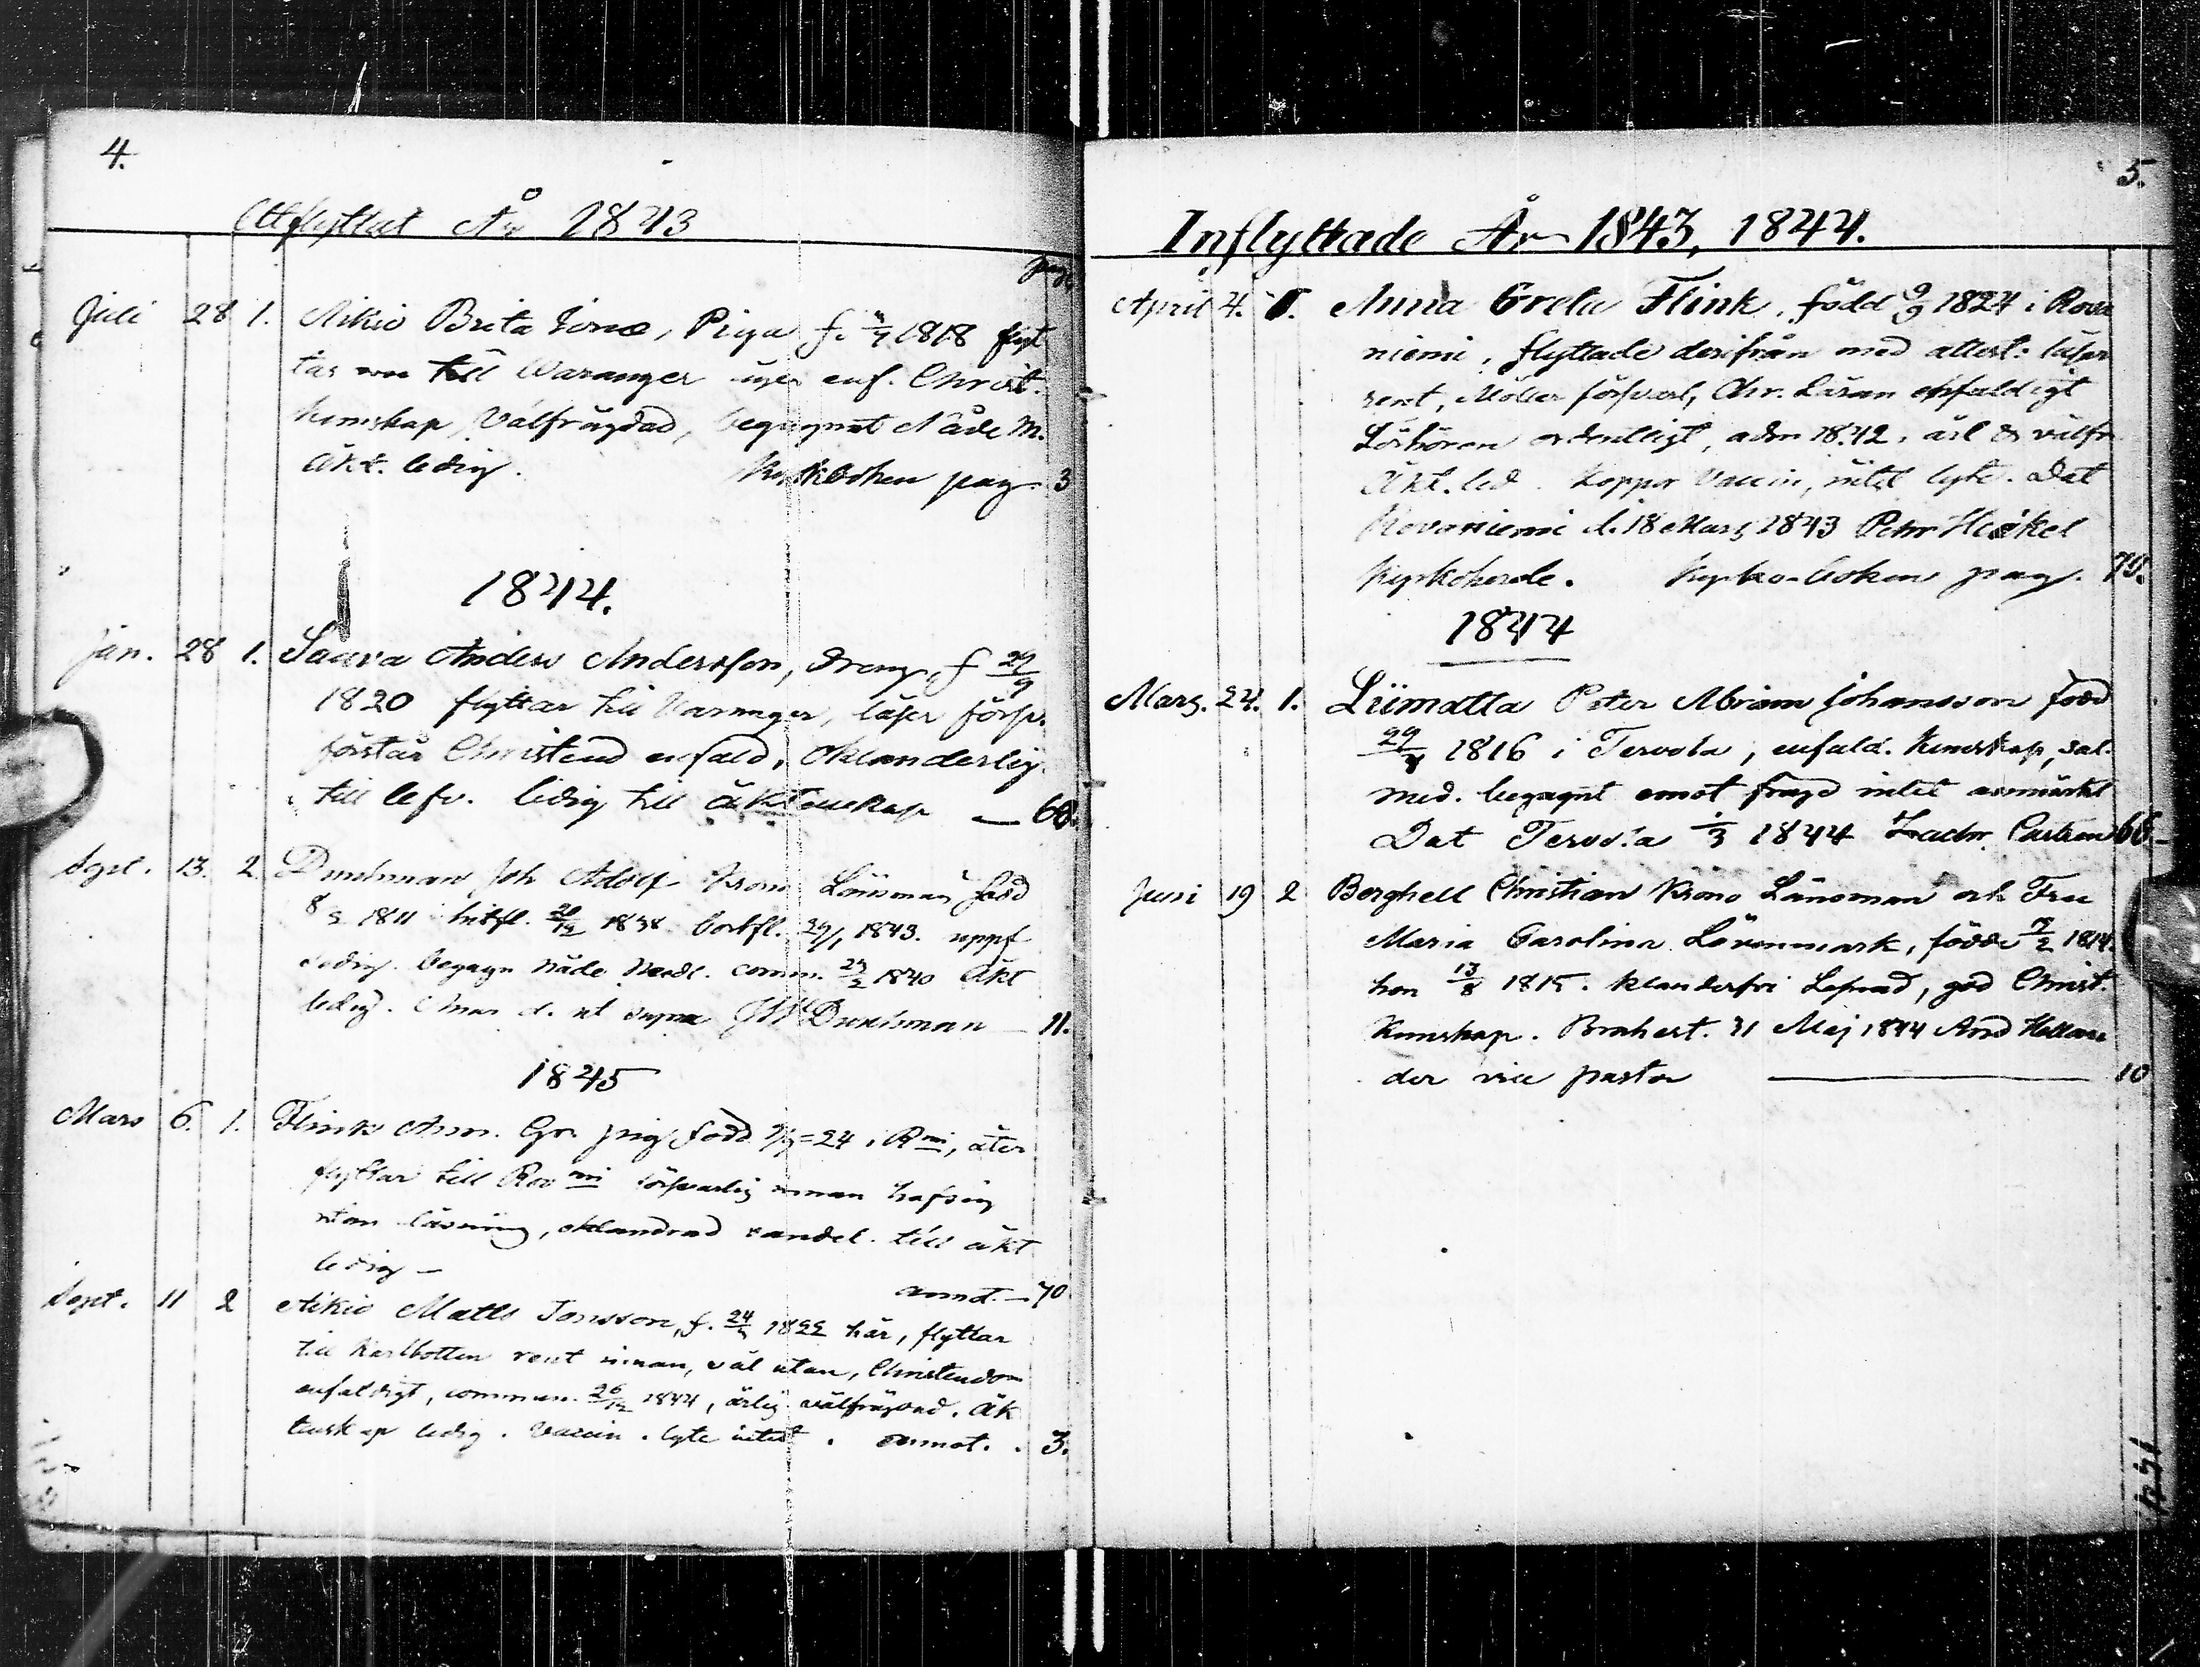 4.
Utflyttat År 1843
pag.
Juli 28 1. Aikio Brita Jonæ, Piga f. 1818 flyt
tar till Waranger äger enf. Christ.
kunskap, Välfrägdad, begagnat Nåde M.
Äkt. ledig. Kyrkboken pag. 3
1844.
Jan. 28 1. Saava Anders Andersson, dreng, f 24/9
1820 flyttar till Waranger, läser försv.
förstår Christend enfald, oklanderlig
till lefv. ledig till äktenskap — 60.
Sept. 13. 2. Dunkman Joh Adolf Krono Länsman född
8/2 1811 hitfl. 1838. bortfl. 29/1 1843. uppf
sedig. begagn Nåde Nardv. comm. 1840 äkt
ledig. d. ut supra Dunkman — 11.
1845
Mars 6. 1. Flink Ann. Gr. pig född 9/9=24 i R:mi, åter
flyttar till Rov:mi försvarlig innan hafsig
utan läsning, oklandrad vandel. till äkt
ledig — annot. — 70
Sept. 11 2 Aikio Matts Jonsson, f. 1822 här, flyttar
till Karlbotten rent innan, väl utan, Christendom
enfaldigt, commun. 26/12 1844, ärlig välfrägdad. Äk
tenskap ledig. Vaccin. lyte intet. annot. . 3.
5.
Inflyttade År 1843, 1844.
April 4. 1. Anna Greta Flink, född 9/9 1824 i Rova
niemi, flyttade derifrån med attest: läser
rent, Möller försvarl, Chr. Läran enfaldigt
Läsören ordentligt, adm 1842, ärl & välfr
Äkt. led. Koppor Vaccin, intet lyte. Dat
Rovaniemi d. 18 Mars 1843 Petr Heikel
Kyrkoherde. Kyrko-boken pag. 70.
1844
Mars. 24. 1. Liimatta Peter Abram Johansson född
1816 i Tervola, enfald. kunskap, sal.
med. begagnt emot frägd intet anmärkt
Dat Tervola 1/3 1844 Zachr. Castren 66-
Juni 19 2 Berghell Christian Krono Länsman och Fru
Maria Carolina Lövenmark, födde 1814.
hon 13/8 1815. klanderfri Lefnad, god Christ.
Kunskap. Brahest. 31 Maj 1844 And Hellan
der vice pastor — 10